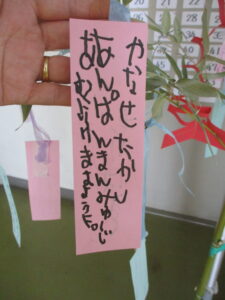 かなせ たかし
あんぱんまんみゅーじ
あむにいけますように。